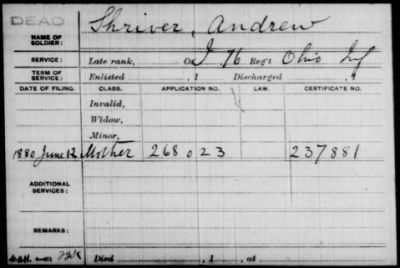 DEAD
NAME OF SOLDIER: Shriver, Andrew
SERVICE: Late rank, Co. I 76 Reg't Ohio Inf
TERM OF SERVICE: Enlisted , 1 Discharged , 1
DATE OF FILING. CLASS. APPLICATION NO. LAW. CERTIFICATE NO.
Invalid,
Widow,
Minor,
1880 June 12 Mother 268023 237881
ADDITIONAL SERVICES:
REMARKS:
Died , 1 , at